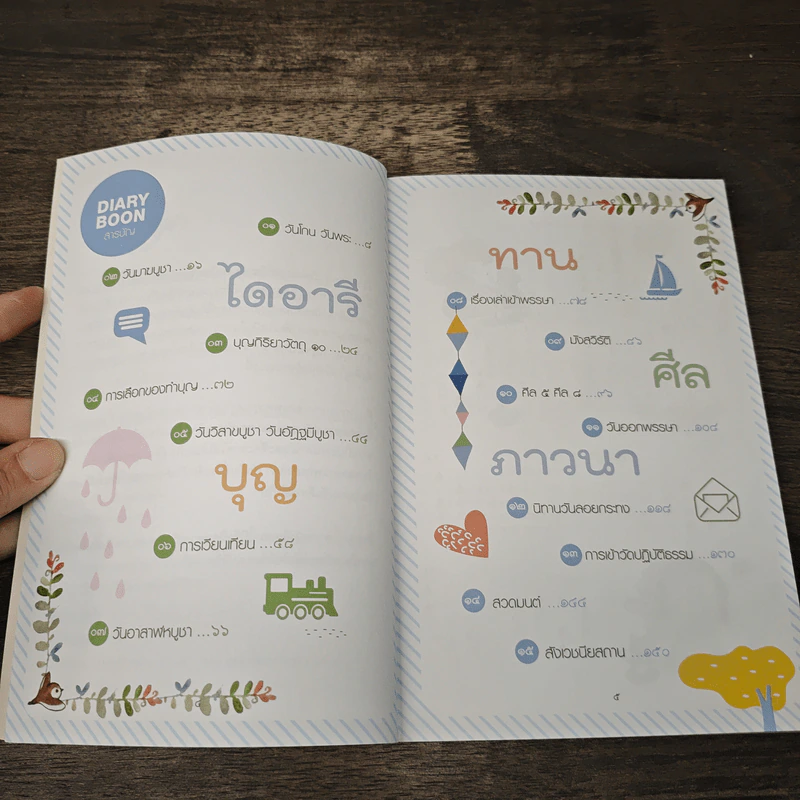 DIARY
BOON
สารบัญ
๐๑ วันโกน วันพระ ...๘
๐๒ วันมาฆบูชา ...๑๖
ไดอารี
๐๓ บุญกิริยาวัตถุ ๑๐ ...๒๔
๐๔ การเลือกของทำบุญ ...๓๒
๐๕ วันวิสาขบูชา วันอัฏฐมีบูชา ...๔๔
บุญ
๐๖ การเวียนเทียน ...๕๘
๐๗ วันอาสาฬหบูชา ...๖๖
ทาน
๐๘ เรื่องเล่าเข้าพรรษา ...๗๘
๐๙ มังสวิรัติ ...๘๖
ศีล
๑๐ ศีล ๕ ศีล ๘ ...๙๖
๑๑ วันออกพรรษา ...๑๐๔
ภาวนา
๑๒ นิทานวันลอยกระทง ...๑๑๘
๑๓ การเข้าวัดปฏิบัติธรรม ...๑๓๐
๑๔ สวดมนต์ ...๑๔๔
๑๕ สังเวชนียสถาน ...๑๕๐
๕